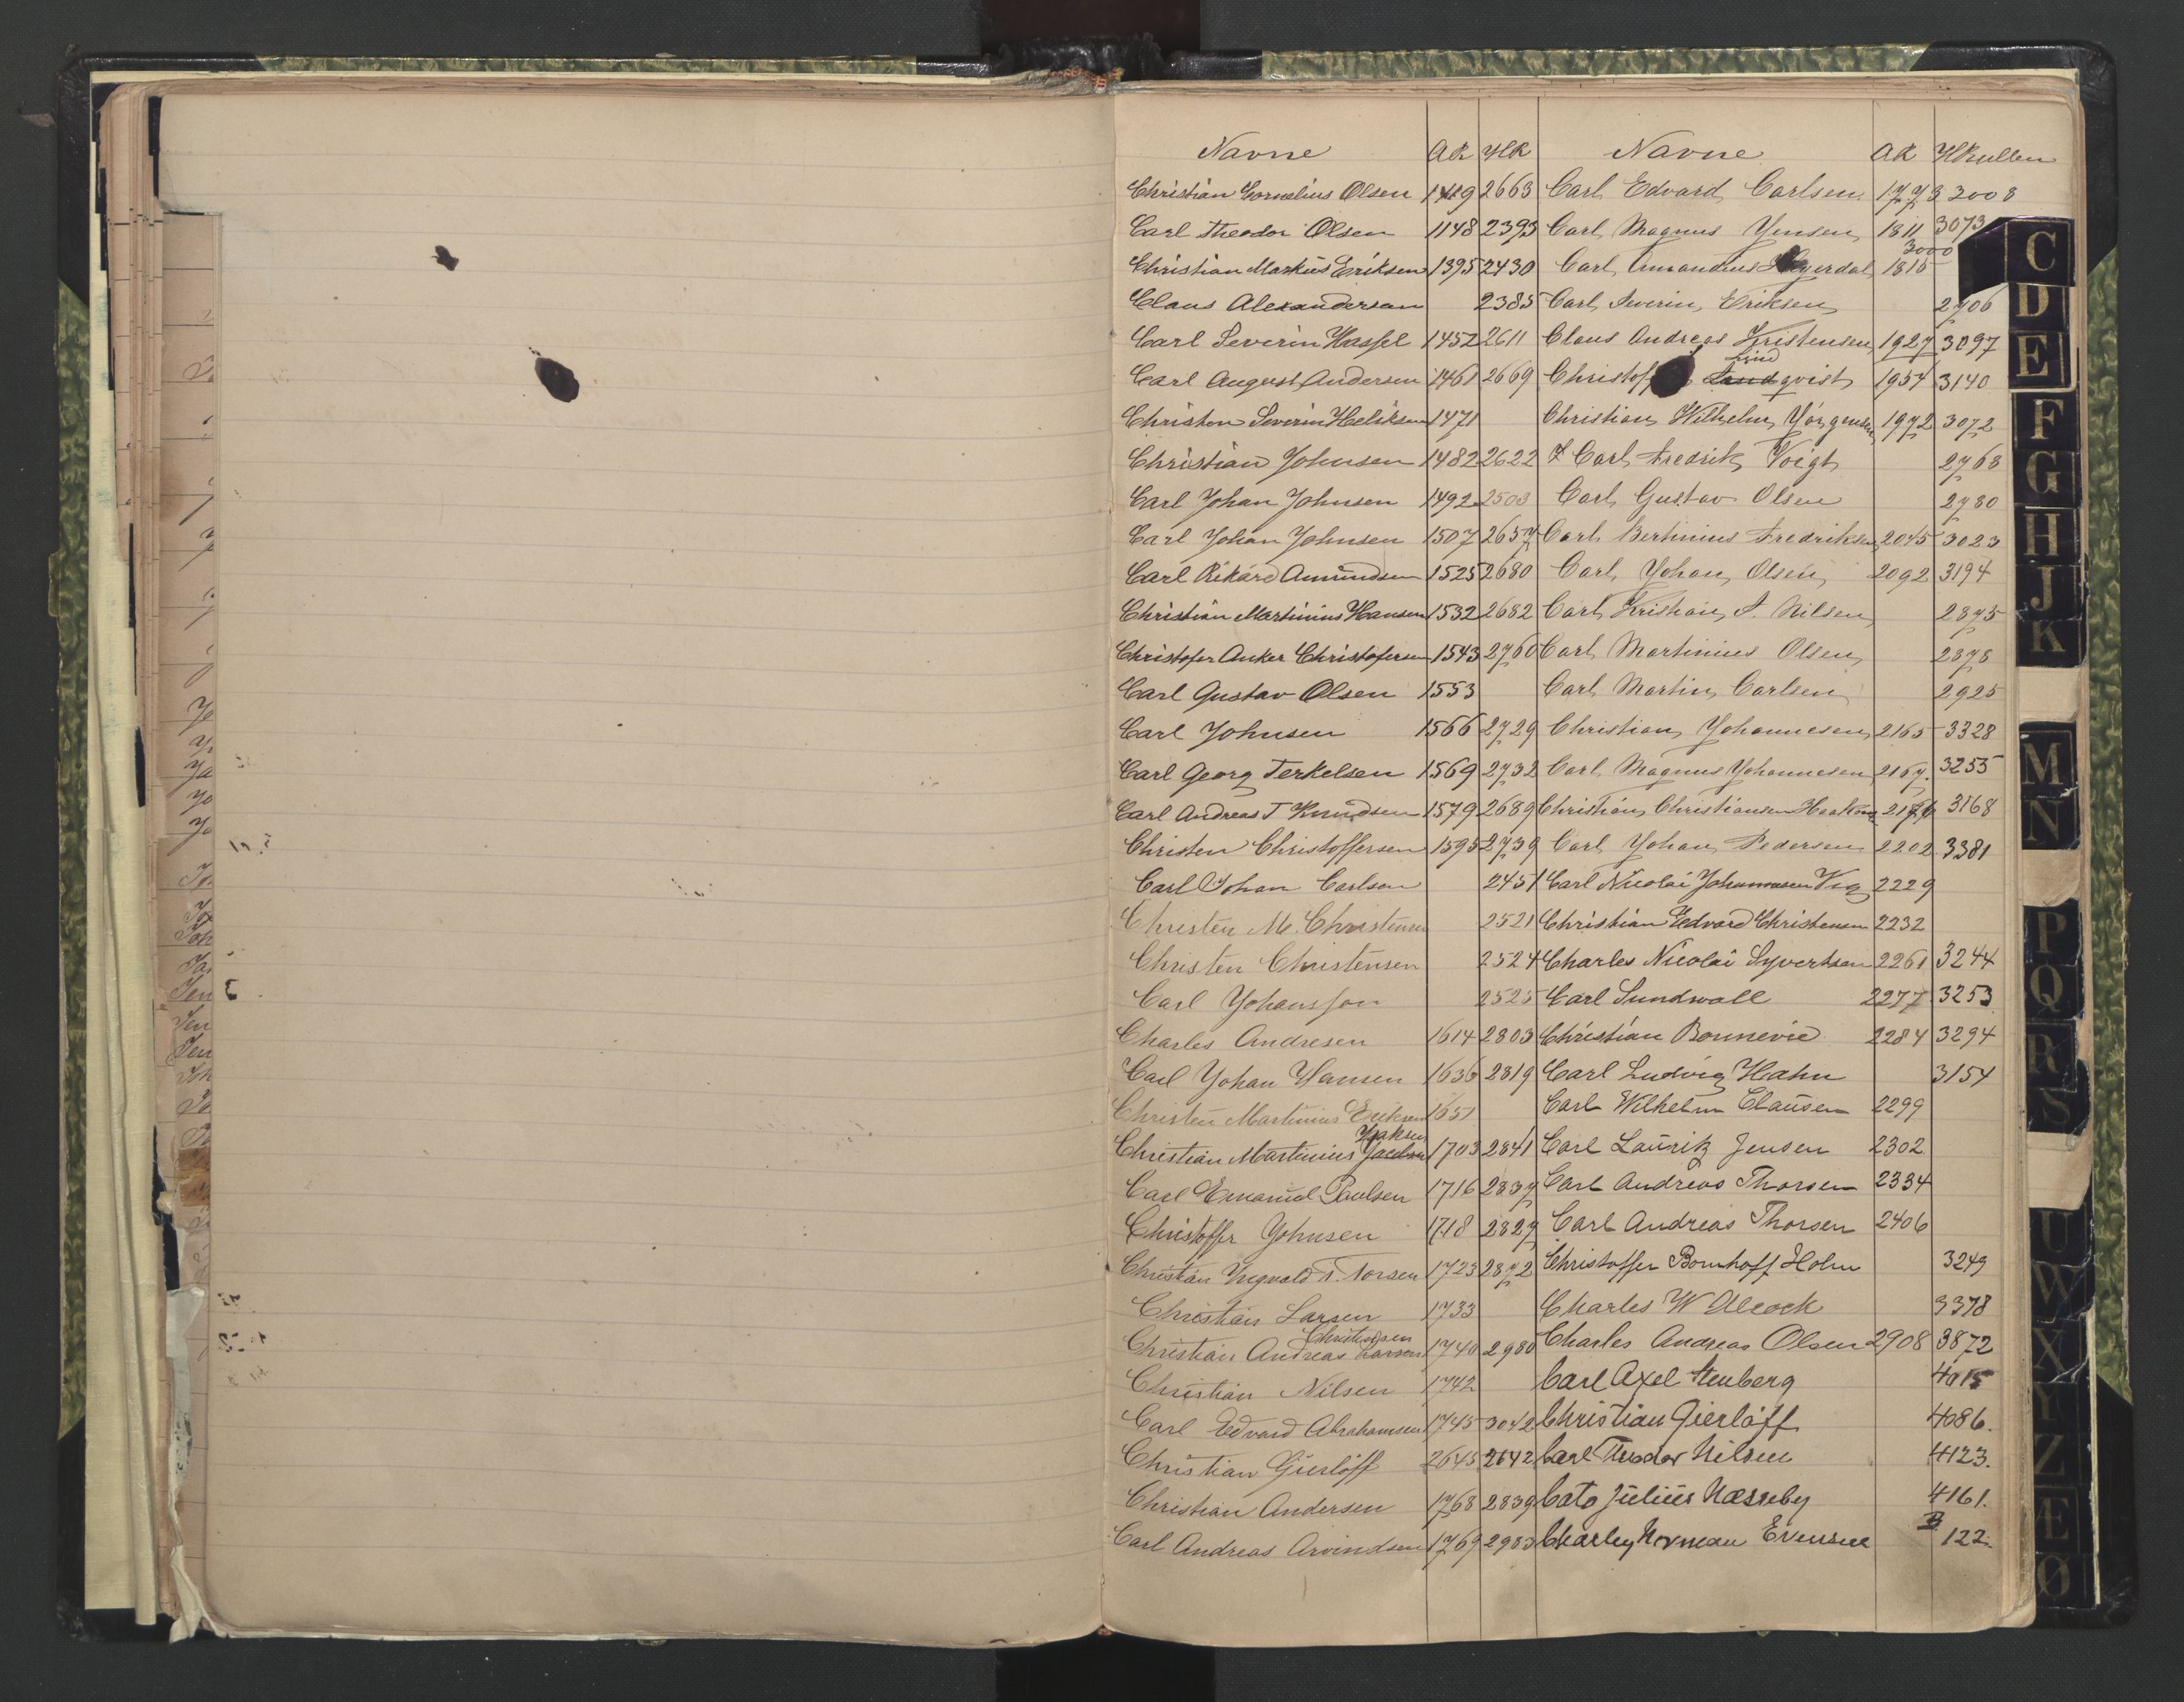 Navne AR HR
Christian Cornelius Olsen 1419 2663
Carl Theodor Olsen 1148 2393
Christian Markus Eriksen 1395 2430
Claus Alexandersen 2385
Carl Severin Hassel 1452 2611
Carl August Andersen 1461 2669
Christen Severin Heliksen 1471
Christian Johnsen 1482 2622
Carl Johan Johnsen 1492 2503
Carl Johan Johnsen 1507 2657
Carl Rikard Amundsen 1525 2680
Christian Martinius Hansen 1532 2682
Christofer Anker Christofersen 1543 2760
Carl Gustav Olsen 1553
Carl Johnsen 1566 2729
Carl Georg Terkelsen 1569 2732
Carl Andreas T Knudsen 1579 2689
Christen Christoffersen 1595 2739
Carl Johan Carlson 2451
Christen M. Christensen 2521
Christen Christensen 2524
Carl Johansson 2525
Charles Andresen 1614 2803
Carl Johan Hansen 1636 2819
Christen Martinius Eriksen 1651
Christian Martinius Jacobsen 1703 2841
Carl Emanuel Paulsen 1716 2837
Christoffer Johnsen 1718 2827
Christian Ingvald T. Torsen 1723 2872
Christian Larsen 1733
Christensen
Christian Andreas Larsen 1740 2980
Christian Nilsen 1742
Carl Edvard Abrahamsen 1745 3042
Christian Gierløff 2645 2642
Christian Andersen 1768 2839
Carl Andreas Arvindsen 1769 2983
Navne AR HRullen
Carl Edvard Carlsen 1773 3008
Carl Magnus Jensen 1811 3073
Carl Amandius 1815 3000
Carl Severin Eriksen 2706
Claus Andreas Kristensen 1927 3097
Lind
Landqvist 1954 3140
Christian Wilhelm Jörgensen 1972 3072
Carl Fredrik Voigt 2768
Carl Gustav Olsen 2780
Carl Bertinius Fredriksen 2045 3023
Carl Johan Olsen 2092 3194
Carl Kristian A. Nilsen 2875
Carl Martinius Olsen 2878
Carl Martin Carlsen 2925
Christian Johannesen 2165 3328
Carl Magnus Johannesen 2167. 3255
Christian Christiansen 3168
Carl Johan Pedersen 2202 3381
Carl Nicolai Johannesen Vig 2229
Christian Edvard Christensen 2232
Charles Nicolai Syvertsen 2261 3244
Carl Sundwall 2277 3253
Christian Bonnevie 2284 3294
Carl Ludvig Hahn 3154
Carl Wilhelm Clausen 2299
Carl Lauritz Jensen 2302
Carl Andreas Thorsen 2334
Carl Andreas Thorsen 2406
Christoffer Bornhoff Holm 3249
Charles W Alcock 3378
Charles Andreas Olsen 2908 3872
Carl Axel Stenberg 4015
Christian Gierløff 4086.
Carl Theodor Nilsen 4123.
Cato Julius Næsseby 4161.
Charley Norman Evensen B 122.
C
D
E
F
G
H
J
K
M
N
P
Q
R
S
U
W
X
Y
Z
Æ
Ø